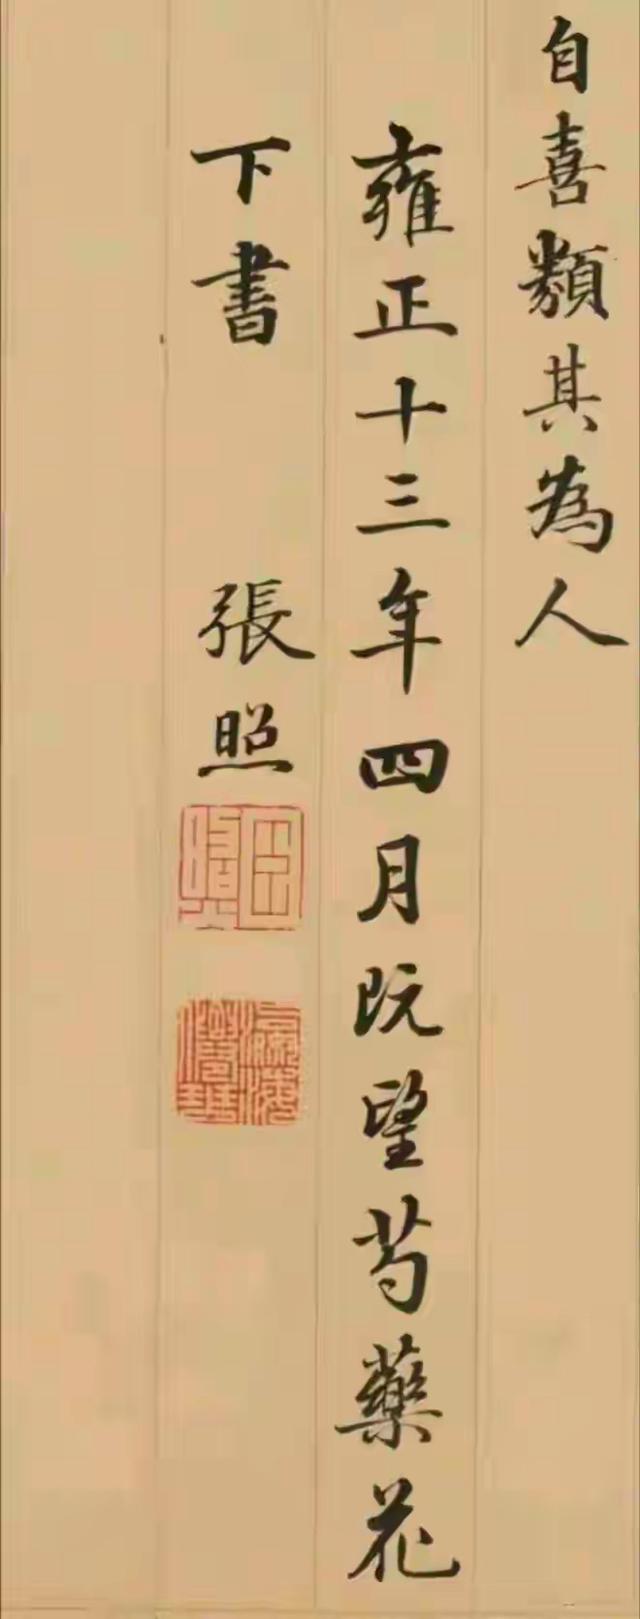 自喜類其為人
雍正十三年四月既望芍藥花
下書 張照